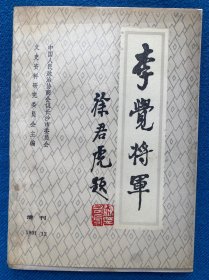 李覺将軍
徐君虎題
中国人民政治协商会议长沙市委员会
文史资料研究委员会主编
增刊
1991.12